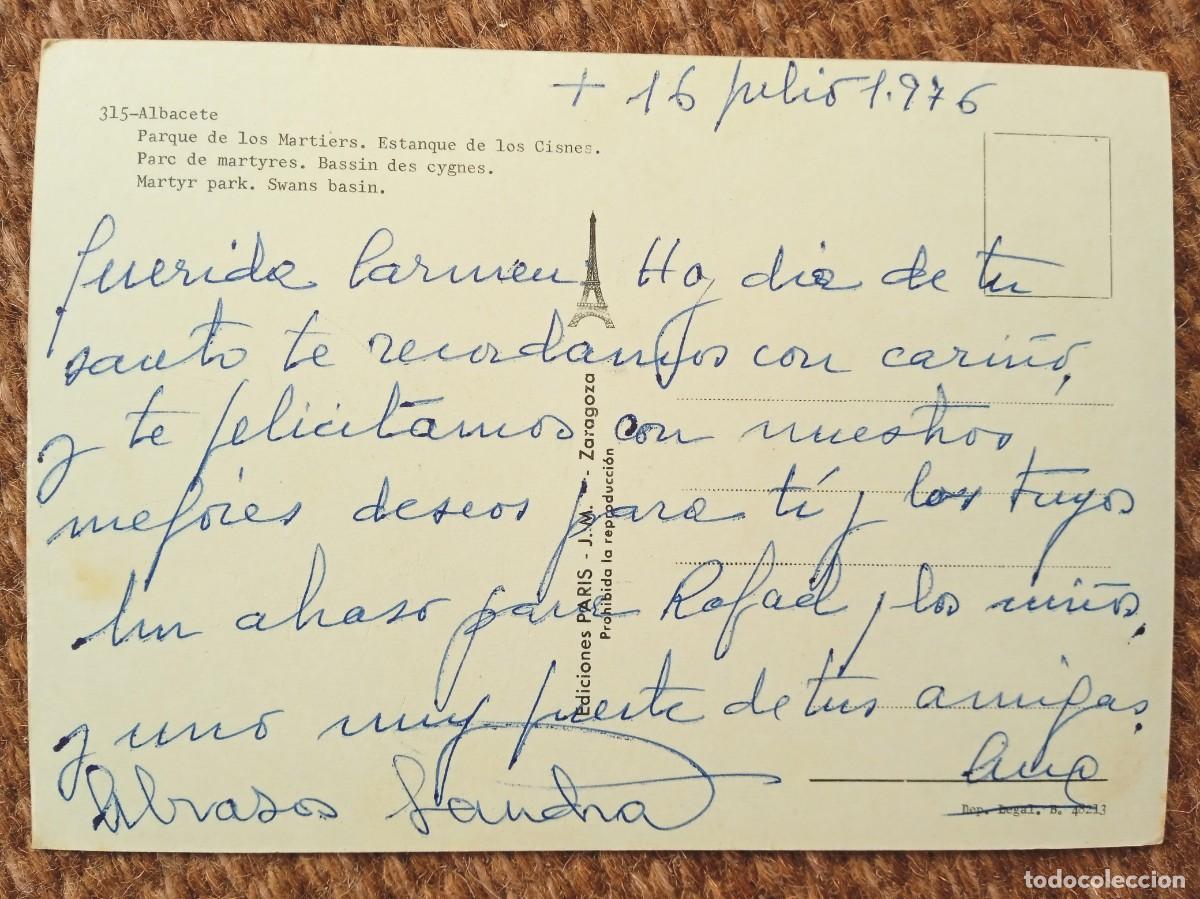 + 16 julio 1.976
315-Albacete
Parque de los Martiers. Estanque de los Cisnes.
Parc de martyres. Bassin des cygnes.
Martyr park. Swans basin.
Querida Carmen: Hoy dia de tu
santo te recordamos con cariño,
y te felicitamos con nuestros
mejores deseos para tí y los tuyos
Un abraso para Rafael y los niños,
y uno muy fuerte de tus amigas.
Ana
Abrasos Sandra
Ediciones PARIS - J. M. - Zaragoza
Prohibida la reproducción
Dep. Legal. B. 48213
todocoleccion